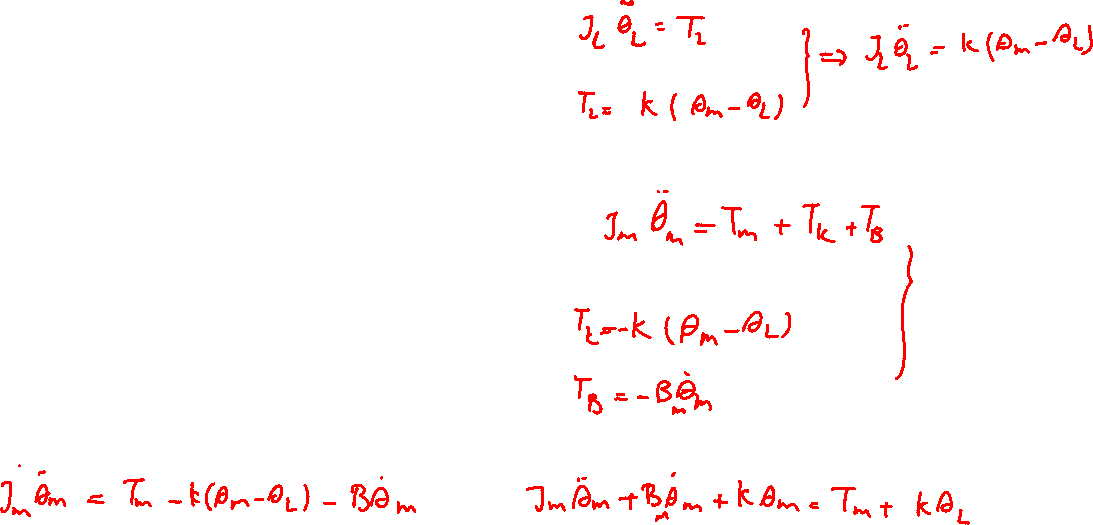 J_L θ̈_L = T_L
T_L = k (θ_m - θ_L) } ⇒ J_L θ̈_L = k (θ_m - θ_L)
J_m θ̈_m = T_m + T_k + T_B
T_k = -k (θ_m - θ_L)
T_B = -B_m θ̇_m
J_m θ̈_m = T_m - k(θ_m - θ_L) - Bθ̇_m
J_m θ̈_m + B_m θ̇_m + k θ_m = T_m + k θ_L